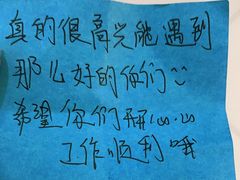 真的很高兴能遇到
那么好的你们
希望你们开开心心
工作顺利哦